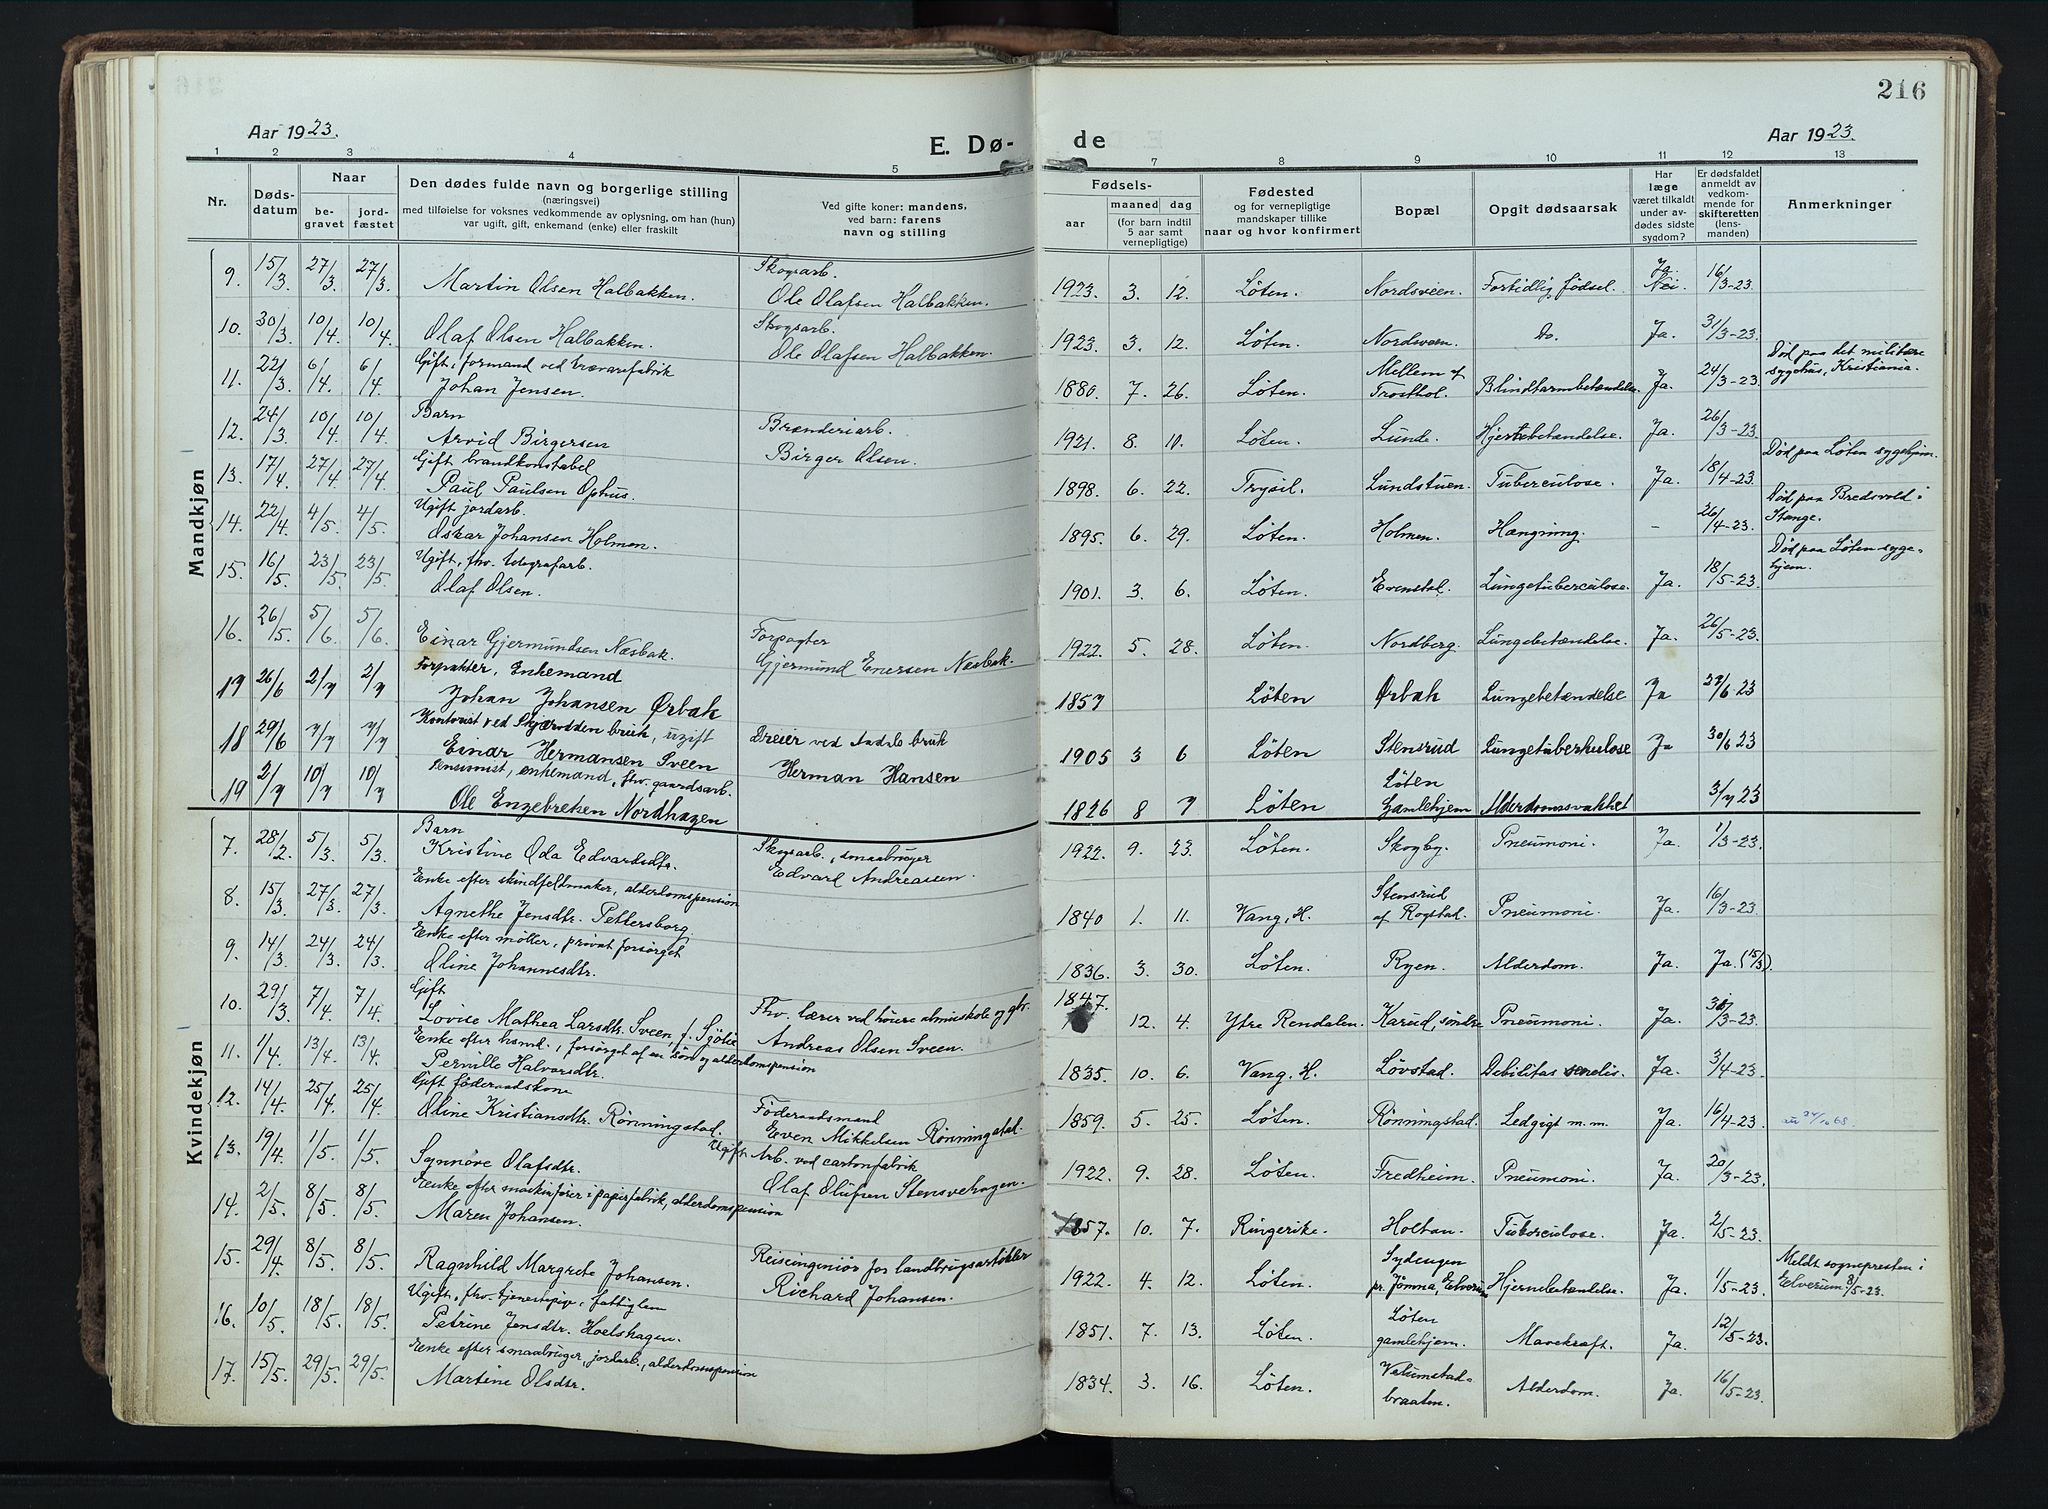 216
Aar 1923.
E. Dø-
de
Aar 1923.
1 2 3 4 5 7 8 9 10 11 12 13
Nr.
Døds-
datum
Naar
be-
gravet
jord-
fæstet
Den dødes fulde navn og borgerlige stilling
(næringsvei)
med tilføielse for voksnes vedkommende av oplysning, om han (hun)
var ugift, gift, enkemand (enke) eller fraskilt
Ved gifte koner: mandens,
ved barn: farens
navn og stilling
Fødsels-
aar
maaned dag
(for barn indtil
5 aar samt
vernepligtige)
Fødested
og for vernepligtige
mandskaper tillike
naar og hvor konfirmert
Bopæl
Opgit dødsaarsak
Har
læge
været tilkaldt
under av-
dødes sidste
sygdom?
Er dødsfaldet
anmeldt av
vedkom-
mende for
skifteretten
(lens-
manden)
Anmerkninger
Mandkjøn
9. 15/3 27/3 27/3 Martin Olsen Halbakken. Skogsarb. Ole Olafsen Halbakken. 1923. 3. 12. Løten. Nordsveen. Fortidlig fødsel. Ja. Nei. 16/3-23.
10. 30/3 10/4 10/4 Olaf Olsen Halbakken. Skogsarb. Ole Olafsen Halbakken. 1923. 3. 12. Løten. Nordsveen. Do. Ja. 31/3-23.
11. 22/3 6/4 6/4 Gift, formand ved trævarefabrik Johan Jensen. 1880. 7. 26. Løten. Mellem af Trosthol. Blindtarmbetændelse. Ja. 24/3-23. Død paa det militære sygehus, Kristiania.
12. 24/3 10/4 10/4 Barn Arvid Birgersen Brænderiarb. Birger Olsen. 1921. 8. 10. Løten. Lunde. Hjertebetændelse. Ja. 26/3-23.
13. 17/4 27/4 27/4 Gift, brandkonstabel Paul Paulsen Ophus. 1898. 6. 22. Trysil. Lundstuen. Tuberculose. Ja. 18/4-23. Død paa Løten sygehjem.
14. 22/4 4/5 4/5 Ugift jordarb. Oskar Johansen Holmen. 1895. 6. 29. Løten. Holmen. Hængning. - 26/4-23. Død paa Bredvold i Stange.
15. 16/5 23/5 23/5 Ugift, fhv. telegrafarb. Olaf Olsen. 1901. 3. 6. Løten. Evenstol. Lungetuberculose. Ja. 18/5-23. Død paa Løten syge- hjem.
16. 26/5 5/6 5/6 Einar Gjermundsen Næsbak. Forpagter Gjermund Enersen Næsbak. 1922. 5. 28. Løten. Nordberg. Lungebetændelse. Ja. 26/5-23.
17 26/6 2/7 2/7 Forpakter, Enkemand Johan Johansen Ørbak 1857 Løten Ørbak Lungebetændelse Ja 27/6-23
18 29/6 7/7 7/7 Kontorist ved Skjærodden bruk, ugift Einar Hermansen Sveen Dreier ved Aadals bruk Herman Hansen 1905 3 6 Løten Stensrud Lungetuberkulose Ja 30/6 23
19 2/7 10/7 10/7 Pensionist, enkemand, fhv. gaardsarb. Ole Engebretsen Nordhagen 1826 8 7 Løten Løten Gamlehjem Alderdomssvakhet 3/7 23
Kvindekjøn
7. 28/2. 5/3. 5/3. Barn Kristine Oda Edvardsdtr. Skogsarb., smaabruger Edvard Andreassen. 1922. 9. 23. Løten. Skogby. Pneumoni. Ja. 1/3-23.
8. 15/3. 27/3. 27/3. Enke efter skindfeldmaker, alderdomspension Agnethe Jensdtr. Pettersborg. 1840 1. 11. Vang, H. Stensrud af Rogstad. Pneumoni. Ja. 16/3-23.
9. 14/3. 24/3. 24/3. Enke efter møller, privat forsørget Oline Johannesdtr. 1836. 3. 30. Løten. Ryen. Alderdom. Ja. Ja. (15/3).
10. 29/3. 7/4. 7/4. Gift Lovise Mathea Larsdtr. Sveen, f. Sjølie Fhv. lærer ved høiere almueskole og gbr. Andreas Olsen Sveen. 1847. 12. 4. Ytre Rendalen. Karud, søndre Pneumoni. Ja. 3/3-23.
11. 1/4. 13/4. 13/4. Enke efter husmd., forsørget af en søn og alderdomspension Pernille Halvorsdtr. 1835. 10. 6. Vang, H. Løvstad. Debilitas senelis. Ja. 3/4-23.
12. 14/4. 25/4. 25/4. Gift føderaadskone Oline Kristiansdtr. Rønningstad. Føderaadsmand Even Mikkelsen Rønningstad. 1859. 5. 25. Løten. Rønningstad. Ledgigt m. m. Ja. 16/4-23.
13. 19/4. 1/5. 1/5. Synnøve Olafsdtr. Ugift Arb. ved cartonfabrik Olaf Olufsen Stensvehagen. 1922. 9. 28. Løten. Fredheim. Pneumoni. Ja. 20/3-23.
14. 2/5. 8/5. 8/5. Enke efter maskinfører i papirfabrik, alderdomspension Maren Johansen. 1857. 10. 7. Ringerike. Holtan. Tuberculose. Ja. 2/5-23.
15. 29/4. 8/5. 8/5. Ragnhild Margrete Johansen. Reiseingeniør for landbrugsartikler Richard Johansen. 1922. 4. 12. Løten. Sydengen pr. Jømna, Elverum Hjernebetændelse. Ja. 1/5-23. Meldt sognepresten i Elverum 8/5-23.
16. 10/5. 18/5. 18/5. Ugift, fhv. tjenestepige, fattiglem Petrine Jensdtr. Hoelshagen. 1851. 7. 13. Løten. Løten gamlehjem. Mavekræft. Ja. 12/5-23.
17. 15/5. 29/5. 29/5. Enke efter smaabruger, jordarb., alderdomspension Martine Olsdtr. 1834. 3. 16. Løten. Vetumstad- braaten. Alderdom. Ja. 16/5-23.